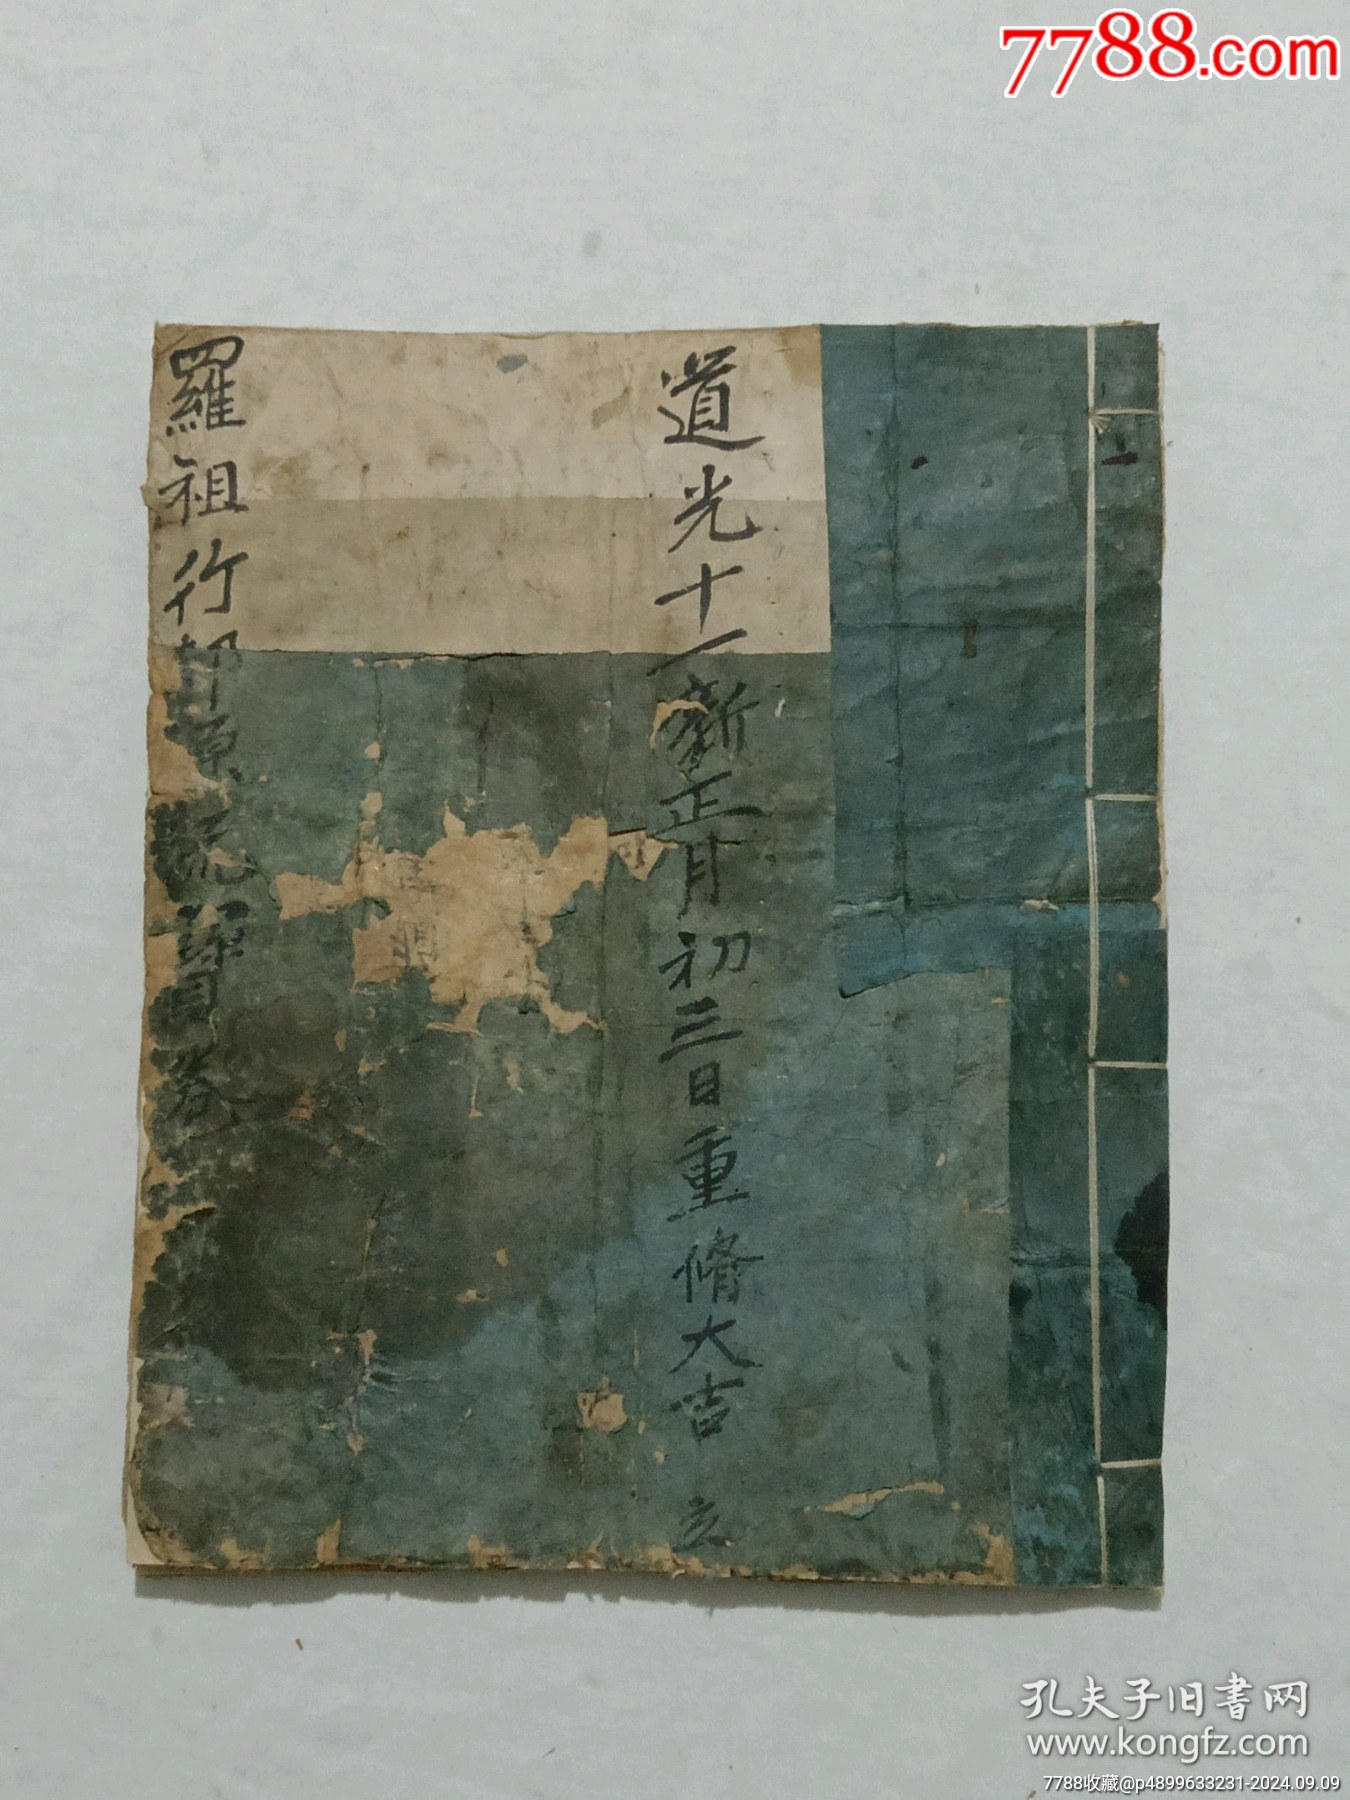 7788.com
道光十一新正月初三日重脩大吉 立
羅祖行脚原流寳卷
孔夫子旧書网
www.kongfz.com
7788收藏@p4899633231-2024.09.09